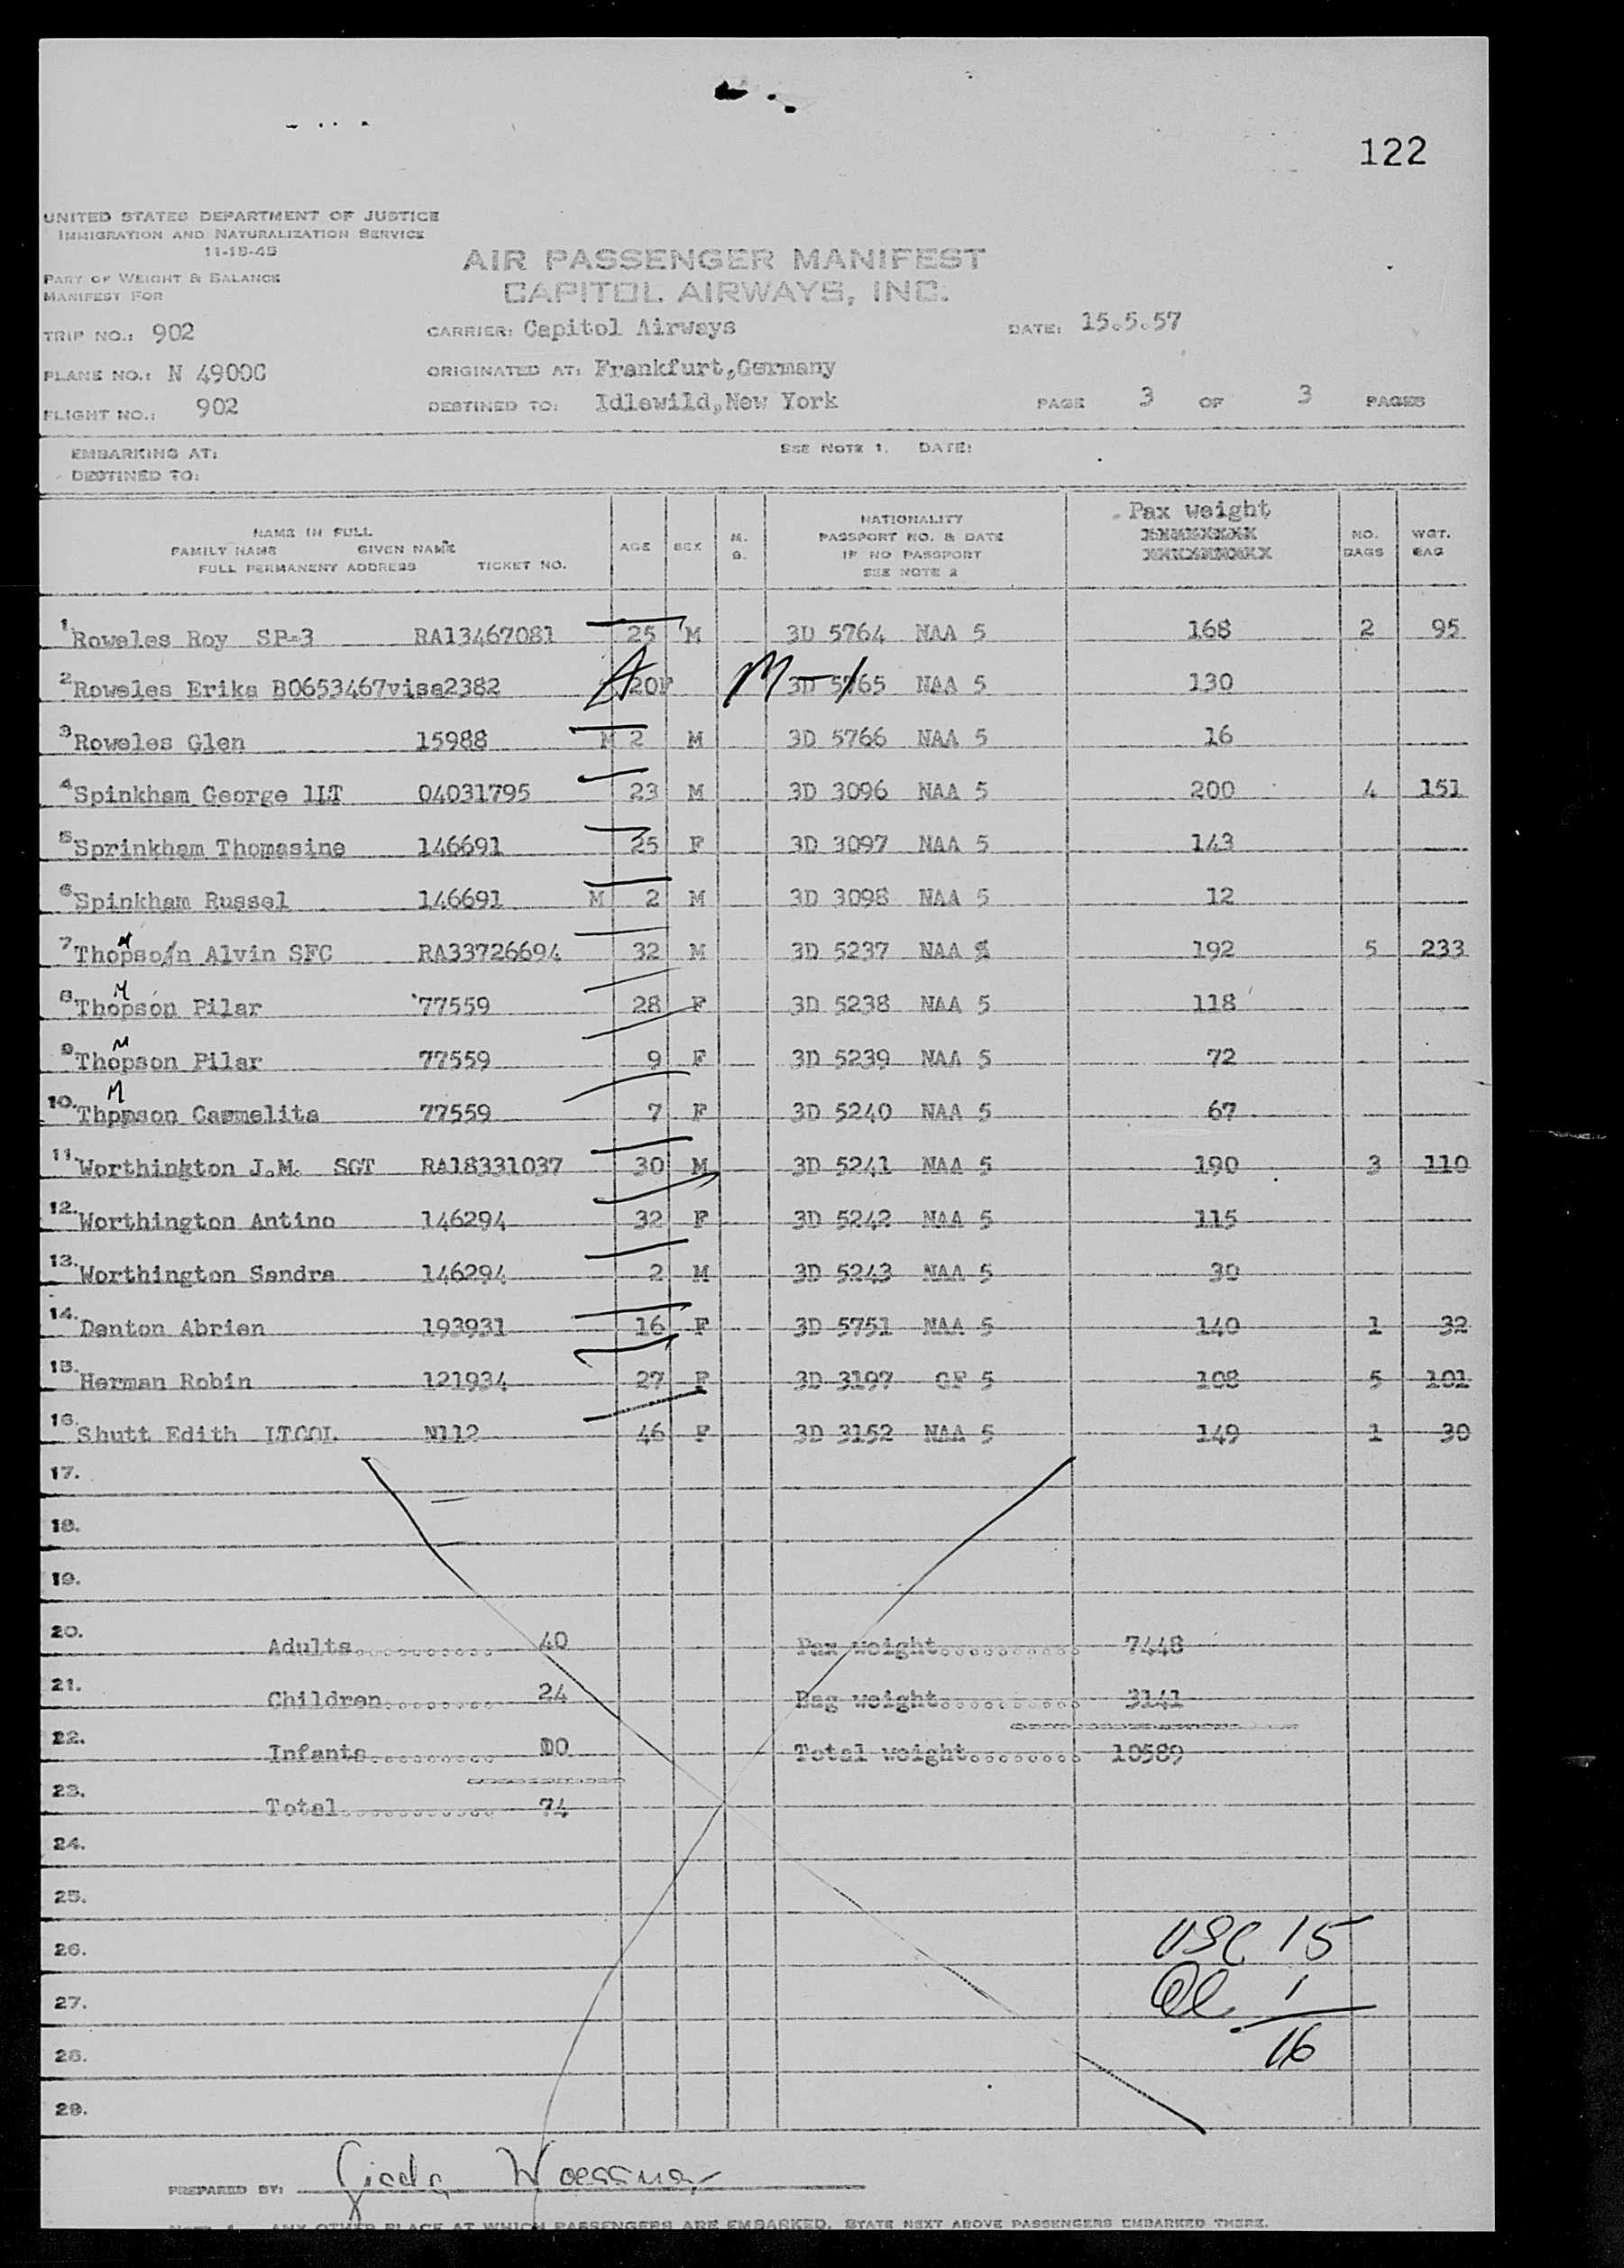 122
UNITED STATES DEPARTMENT OF JUSTICE
IMMIGRATION AND NATURALIZATION SERVICE
11-18-45
PART OF WEIGHT & BALANCE
MANIFEST FOR
AIR PASSENGER MANIFEST
CAPITOL AIRWAYS, INC.
TRIP NO.: 902 CARRIER: Capitol Airways DATE: 15.5.57
PLANE NO.: N 4900C ORIGINATED AT: Frankfurt,Germany
FLIGHT NO.: 902 DESTINED TO: Idlewild,New York PAGE 3 OF 3 PAGES
EMBARKING AT: SEE NOTE 1. DATE:
DESTINED TO:
NAME IN FULL
FAMILY NAME GIVEN NAME
FULL PERMANENT ADDRESS TICKET NO.
AGE SEX M. G.
NATIONALITY
PASSPORT NO. & DATE
IF NO PASSPORT
SEE NOTE 2
Pax weight
NO. BAGS
WGT. BAG
1 Roweles Roy SP-3 RA13467081 25 M 3D 5764 NAA 5 168 2 95
2 Roweles Erika B0653467visa2382 A 20F M-1 3D 5765 NAA 5 130
3 Roweles Glen 15988 M 2 M 3D 5766 NAA 5 16
4 Spinkham George 1LT 04031795 23 M 3D 3096 NAA 5 200 4 151
5 Sprinkham Thomasine 146691 25 F 3D 3097 NAA 5 143
6 Spinkham Russel 146691 M 2 M 3D 3098 NAA 5 12
M
7 Thopson Alvin SFC RA33726694 32 M 3D 5237 NAA 5 192 5 233
M
8 Thopson Pilar 77559 28 F 3D 5238 NAA 5 118
M
9 Thopson Pilar 77559 9 F 3D 5239 NAA 5 72
M
10. Thopson Carmelita 77559 7 F 3D 5240 NAA 5 67
11. Worthington J.M. SGT RA18331037 30 M 3D 5241 NAA 5 190 3 110
12. Worthington Antino 146294 32 F 3D 5242 NAA 5 115
13. Worthington Sandra 146294 2 M 3D 5243 NAA 5 30
14. Denton Abrien 193931 16 F 3D 5751 NAA 5 140 1 32
15. Herman Robin 121934 27 F 3D 3197 GF 5 108 5 101
16. Shutt Edith LTCOL N112 46 F 3D 3152 NAA 5 149 1 30
17.
18.
19.
20. Adults.......... 40 Pax weight.......... 7448
21. Children........ 24 Bag weight.......... 3141
22. Infants......... 10 Total weight........ 10589
23. Total........... 74
24.
25.
26. USC 15
27. 1
28. 16
29.
PREPARED BY: Gisela Woessner
NOTE 1. ANY OTHER PLACE AT WHICH PASSENGERS ARE EMBARKED, STATE NEXT ABOVE PASSENGERS EMBARKED THERE.